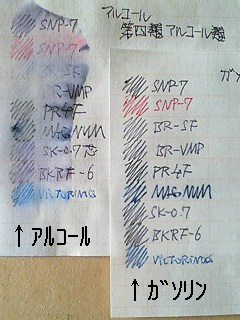 アルコール
第四類 アルコール類
SNP-7
SNP-7
BR-SF
BR-VMP
PR4F
MAGNUM
SK-0.7芯
BKRF-6
VICTORINOX
↑アルコール
ガソ
SNP-7
SNP-7
BR-SF
BR-VMP
PR4F
MAGNUM
SK-0.7
BKRF-6
VICTORINOX
↑ガソリン